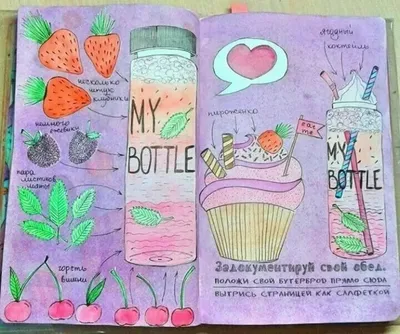 несколько
штук
клубники
немного
ежевики
пара
листиков
мяты
горсть
вишни
MY
BOTTLE
Ягодный
коктейль
пироженко
eat
me
MY
BOTTLE
Задокументируй свой обед.
положи свой бутерброд прямо сюда
вытрись страницей как салфеткой